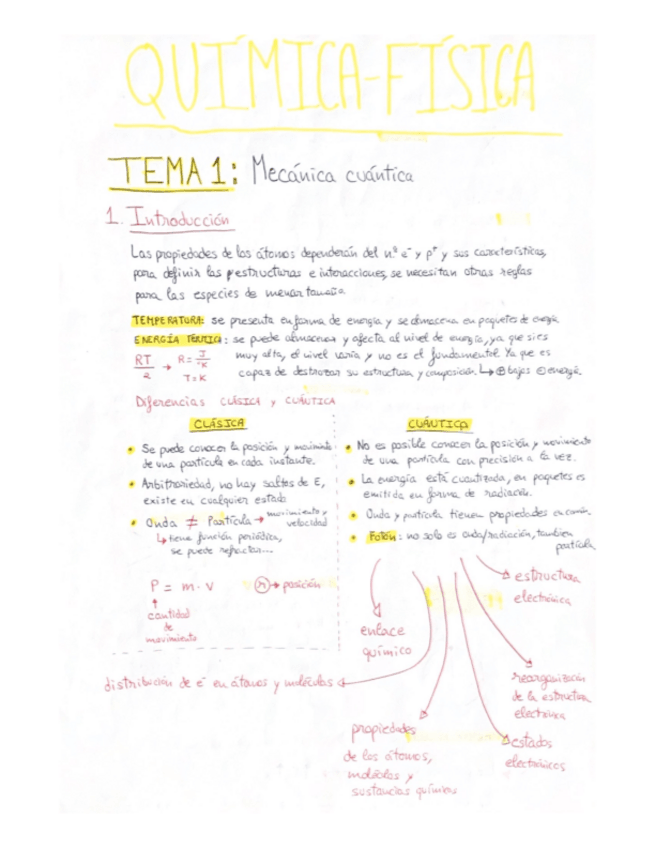 QUÍMICA-FÍSICA
TEMA 1: Mecánica cuántica
1. Introducción
Las propiedades de los átomos dependerán del n.º e⁻ y p⁺ y sus características,
para definir las estructuras e interacciones, se necesitan otras reglas
para las especies de menor tamaño.
TEMPERATURA: se presenta en forma de energía y se almacena en paquetes de energía.
ENERGÍA TÉRMICA: se puede almacenar y afecta al nivel de energía, ya que si es
muy alta, el nivel varía y no es el fundamental. Ya que es
capaz de destrozar su estructura y composición. ↳ ⊕ bajos ⊖ energía.
RT/2 → R = J/K
T = K
Diferencias CLÁSICA y CUÁNTICA
CLÁSICA
• Se puede conocer la posición y movimiento
de una partícula en cada instante.
• Arbitrariedad, no hay saltos de E,
existe en cualquier estado
• Onda ≠ Partícula → movimiento y
velocidad
↳ tiene función periódica,
se puede refractar...
P = m · v
→ posición
↑
cantidad
de
movimiento
CUÁNTICA
• No es posible conocer la posición y movimiento
de una partícula con precisión a la vez.
• La energía está cuantizada, en paquetes es
emitida en forma de radiación.
• Onda y partícula tienen propiedades en común.
• Fotón: no solo es onda/radiación, también
partícula
estructura
electrónica
enlace
químico
reorganización
de la estructura
electrónica
distribución de e⁻ en átomos y moléculas
propiedades
de los átomos,
moléculas y
sustancias químicas
estados
electrónicos